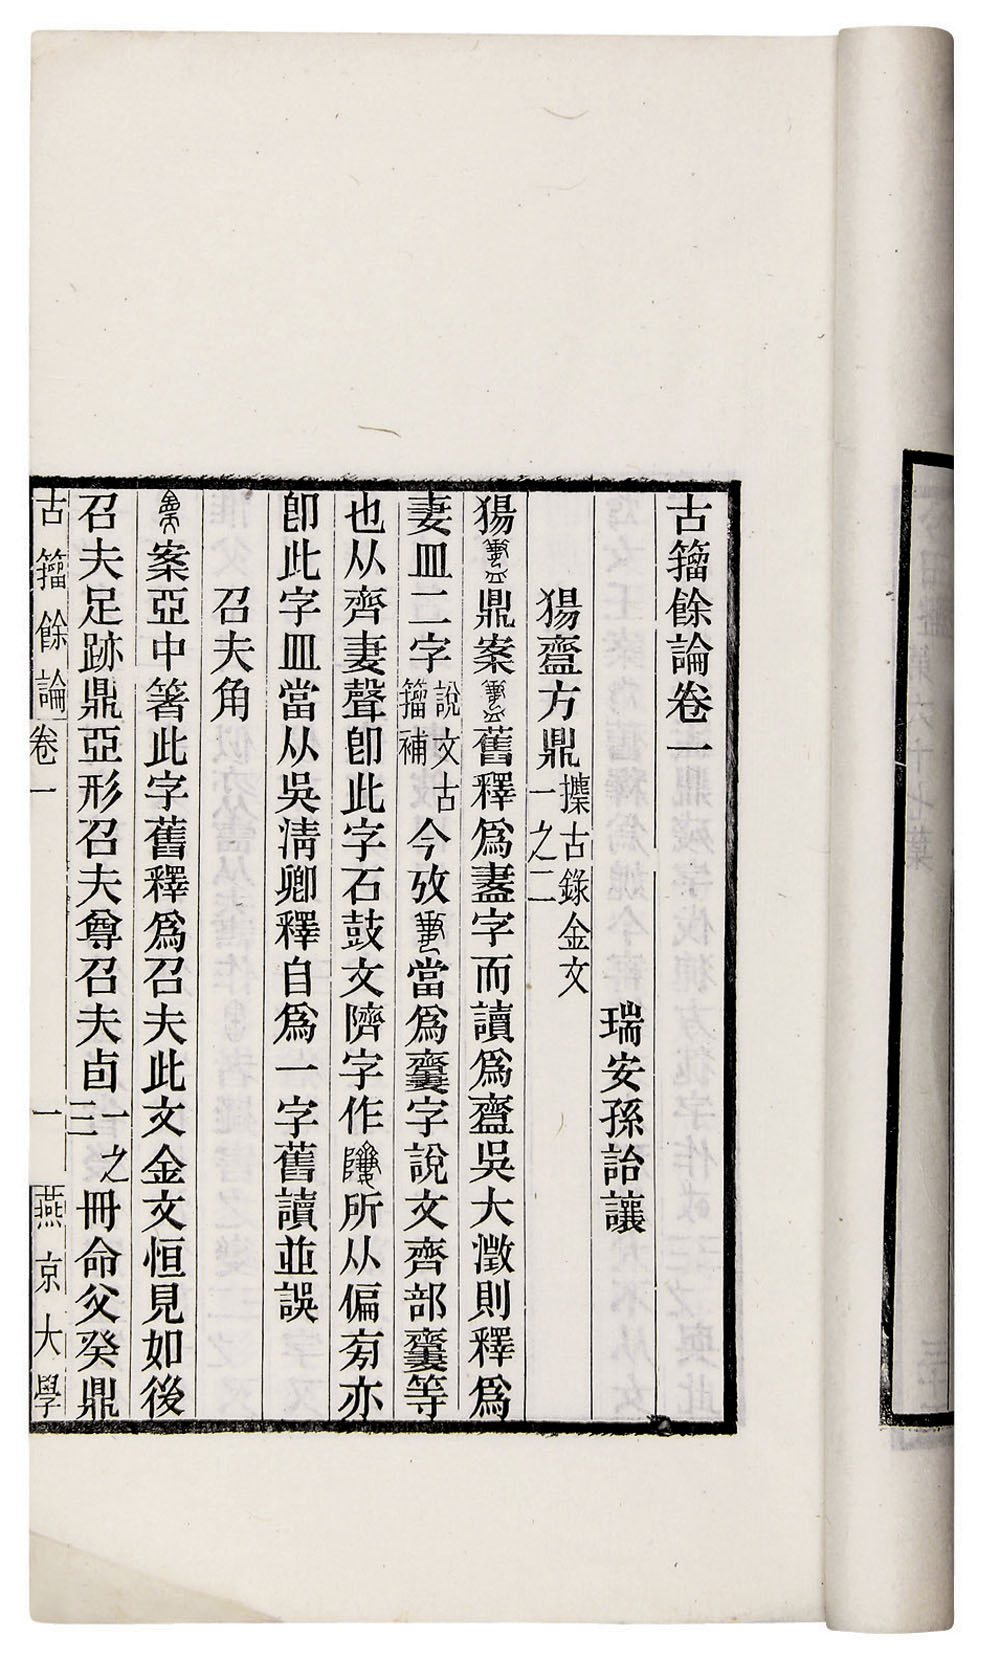 古籀餘論卷一
瑞安孫詒讓
猲齍方鼎攈古錄金文一之二
猲鼎案舊釋爲盞字而讀爲齍吳大澂則釋爲
妻皿二字說文古籀補今攷當爲齎字說文齊部齎等
也从齊妻聲卽此字石鼓文隮字作所从偏㫄亦
卽此字皿當从吳淸卿釋自爲一字舊讀並誤
召夫角
案亞中箸此字舊釋爲召夫此文金文恒見如後
召夫足跡鼎亞形召夫尊召夫卣一之三冊命父癸鼎
古籀餘論 卷一 一 燕京大學